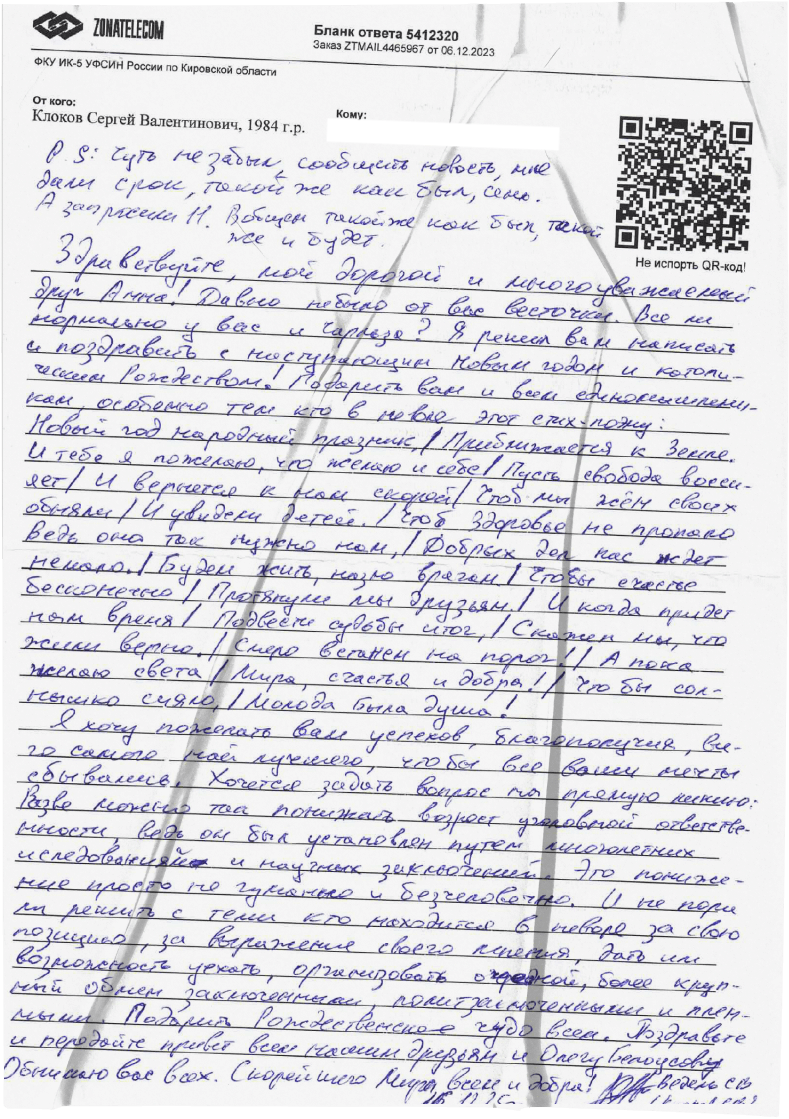 ZONATELECOM
Бланк ответа 5412320
Заказ ZTMAIL4465967 от 06.12.2023
ФКУ ИК-5 УФСИН России по Кировской области
От кого:
Клоков Сергей Валентинович, 1984 г.р.
Кому:
P.S: Чуть не забыл, сообщить новость, мне
дали срок, такой же как был, семь.
А запросили 11. Вобщем такой же как был, такой
же и будет.
Не испорть QR-код!
Здравствуйте, мой дорогой и многоуважаемый
друг Анна! Давно небыло от вас весточки. Все ли
нормально у вас и Чарльза? Я решил вам написать
и поздравить с наступающим Новым годом и католи-
ческим Рождеством! Подарить вам и всем единомышленни-
кам, особенно тем кто в неволе этот стих-пожу:
Новый год народный празник,/ Приближается к Земле.
И тебе я пожелаю, что желаю и себе/ Пусть свобода восси-
яет/ И вернется к нам скорей/ Чтоб мы жён своих
обняли/ И увидели детей./ Чтоб Здоровье не пропало
Ведь оно так нужно нам,/ Добрых дел нас ждет
немало./ Будем жить, назло врагам/ Чтобы счастье
бесконечно/ Протянули мы друзьям./ И когда придет
нам время/ Подвести судьбы итог,/ Скажем мы, что
жили верно./ Смело встанем на порог!/ А пока
желаю света/ Мира, счастья и добра!/ Что бы сол-
нышко сияло,/ Молода была душа!
Я хочу пожелать вам успехов, благополучия, все-
го самого най лучшего, чтобы все ваши мечты
сбывались. Хочется задать вопрос на прямую линию:
Разве можно так понижать возрост уголовной ответстве-
нности, ведь он был установлен путем многолетних
иследований и научных заключений. Это пониже-
ние просто не гуманно и безчеловечно. И не пора
ли решить с теми кто находится в неволе за свою
позицию, за выражение своего мнения, дать им
возможность уехать, организовать очередной, более круп-
ный обмен заключенными, политзаключенными и плен-
ными. Подарить Рождественское чудо всем. Поздравьте
и передайте привет всем нашим друзьям и Олегу Белоусову
Обнимаю вас всех. Скорейшего Мира всем и добра!